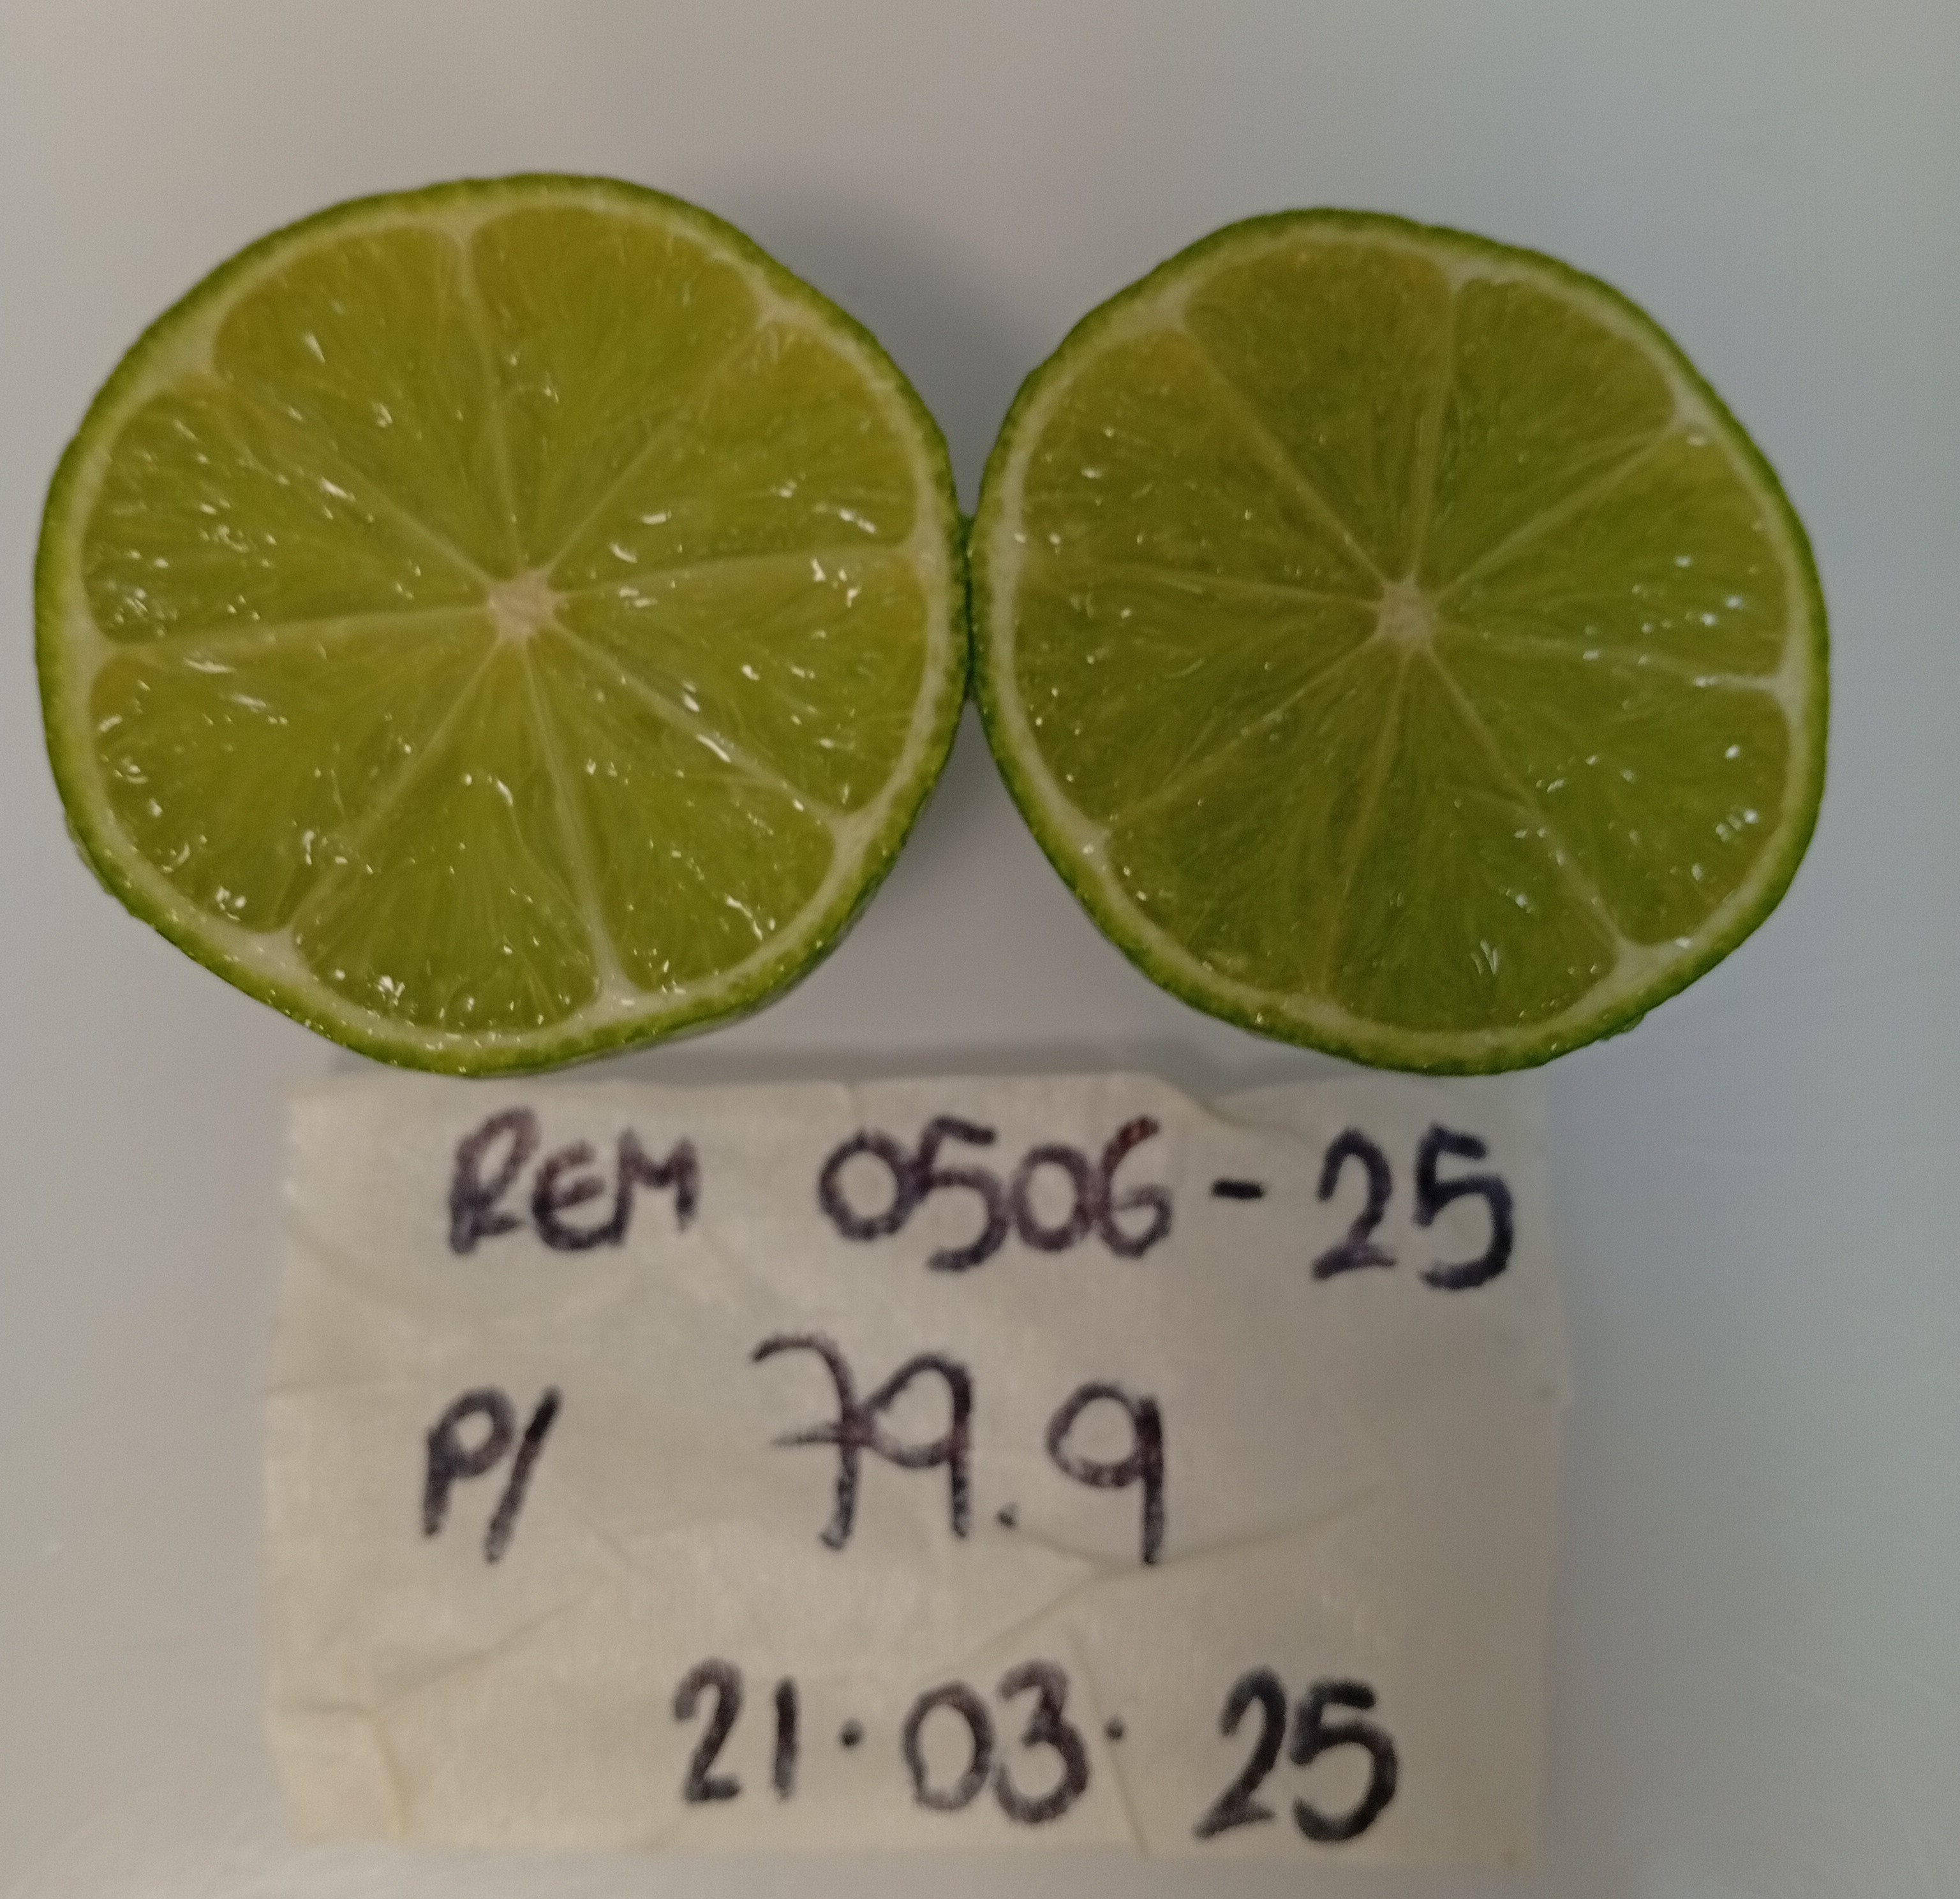 REM 0506-25
P/ 79.9
21.03.25